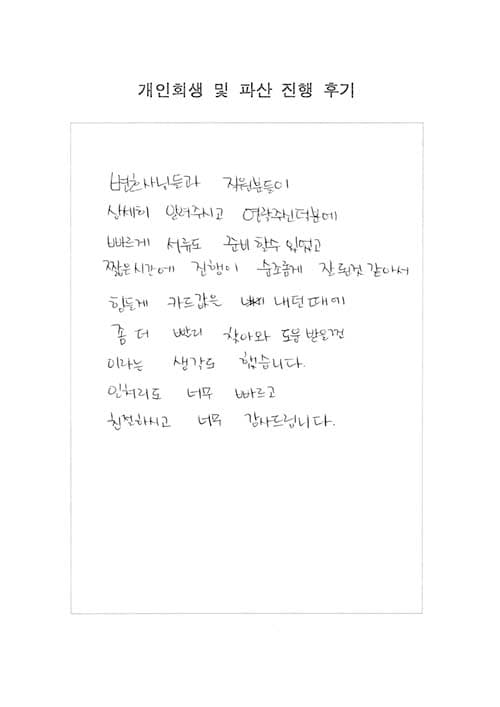 개인회생 및 파산 진행 후기
변호사님들과 직원분들이
상세히 알려주시고 연락주신덕분에
빠르게 서류도 준비할수 있었고
짧은시간에 진행이 순조롭게 잘된것 같아서
힘들게 카드값은 내던때에
좀 더 빨리 찾아와 도움 받을껄
이라는 생각도 했습니다.
일처리도 너무 빠르고
친절하시고 너무 감사드립니다.